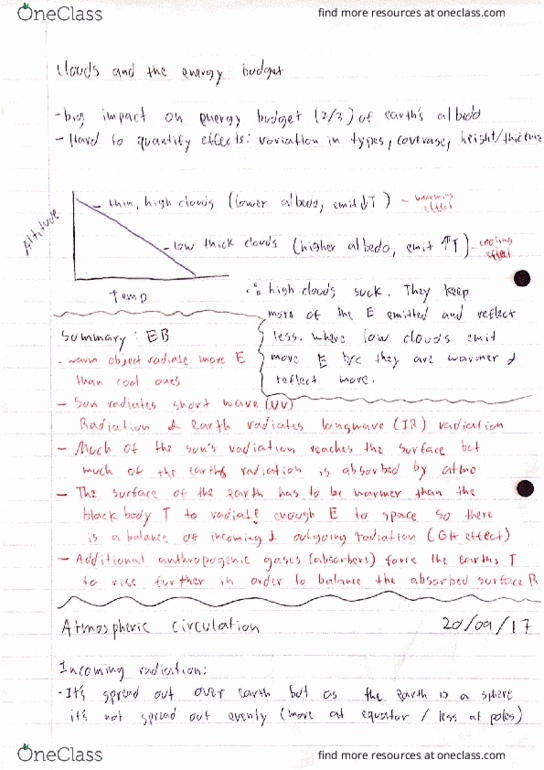 OneClass
find more resources at oneclass.com
Clouds and the energy budget
- big impact on energy budget (2/3) of earth's albedo
- Hard to quantify effects: variation in types, coverage, height/thickness
Altitude
- thin, high clouds (lower albedo, emit ↓T) - warming effect
- low thick clouds (higher albedo, emit ↑T) - cooling effect
Temp
∴ high clouds suck. They keep
more of the E emitted and reflect
less. where low clouds emit
more E b/c they are warmer &
reflect more.
Summary: EB
- warm object radiate more E
than cool ones
- Sun radiates short wave (UV)
Radiation & earth radiates longwave (IR) radiation
- Much of the sun's radiation reaches the surface but
much of the earths radiation is absorbed by atmo
- The surface of the earth has to be warmer than the
black body T to radiate enough E to space so there
is a balance of incoming & outgoing radiation (GH effect)
- Additional anthropogenic gases (absorbers) force the earths T
to rise further in order to balance the absorbed surface R
Atmospheric Circulation 20/09/17
Incoming radiation:
- It's spread out over earth but as the earth is a sphere
it's not spread out evenly (more at equator / less at poles)
OneClass
find more resources at oneclass.com